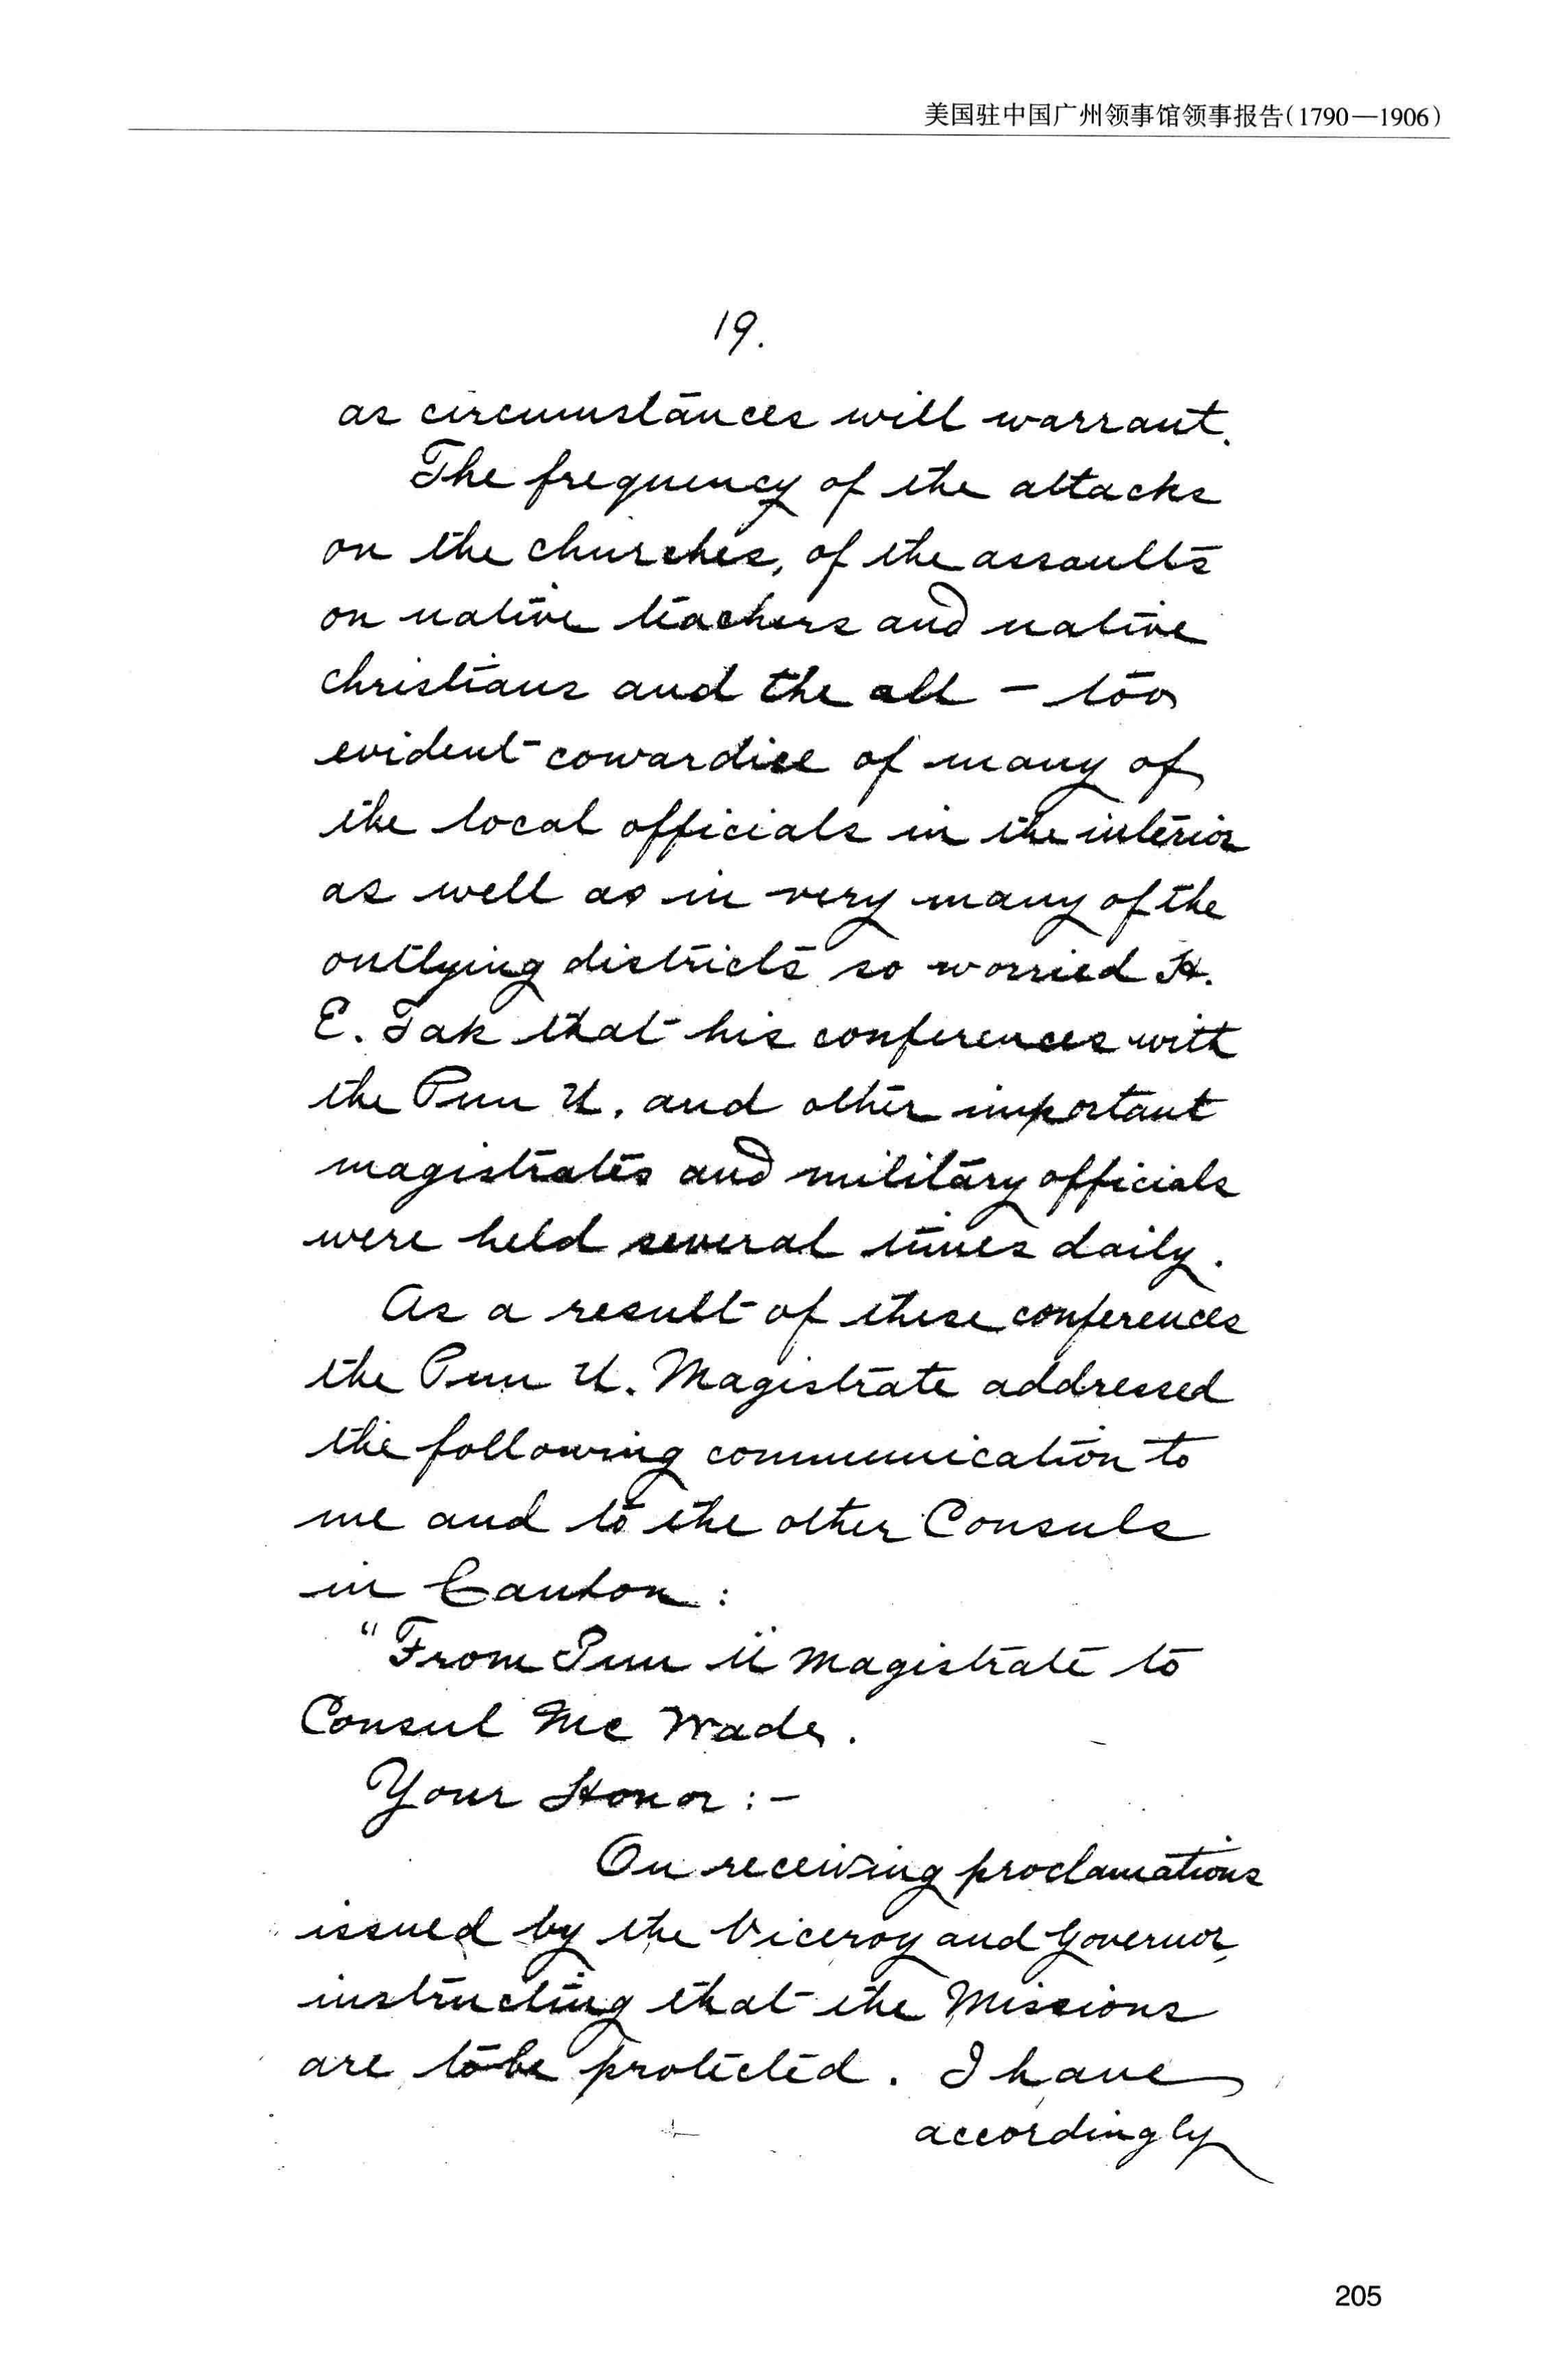 美国驻中国广州领事馆领事报告(1790—1906)
19.
as circumstances will warrant.
The frequency of the attacks
on the churches, of the assaults
on native teachers and native
christians and the all - too
evident cowardice of many of
the local officials in the interior
as well as in very many of the
outlying districts so worried H.
E. Tak that his conferences with
the Pun U. and other important
magistrates and military officials
were held several times daily.
As a result of these conferences
the Pun U. Magistrate addressed
the following communication to
me and to the other Consuls
in Canton:
"From Pun Ü Magistrate to
Consul Mc Wade.
Your Honor:-
On receiving proclamations
issued by the Viceroy and Governor,
instructing that the Missions
are to be protected. I have
accordingly
205